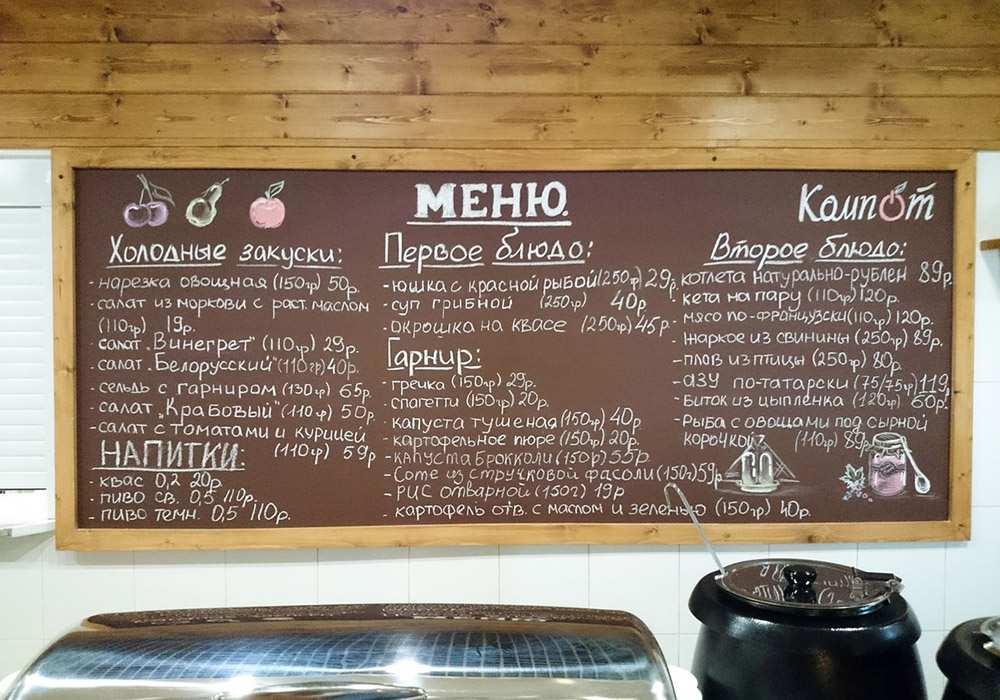 МЕНЮ.
Компот
Холодные закуски:
- нарезка овощная (150гр) 50р.
- салат из моркови с раст. маслом
(110гр) 19р.
- салат „Винегрет" (110гр) 29р.
- салат „Белорусский" (110гр) 40р.
- сельдь с гарниром (130гр) 65р.
- салат „Крабовый" (110гр) 50р.
- салат с томатами и курицей
(110гр) 59р
НАПИТКИ:
- квас 0,2 20р.
- пиво св. 0,5 110р.
- пиво темн. 0,5 110р.
Первое блюдо:
- юшка с красной рыбой (250г) 29р.
- суп грибной (250гр) 40р.
- окрошка на квасе (250гр) 45р.
Гарнир:
- гречка (150гр) 29р.
- спагетти (150гр) 20р.
- капуста тушеная (150гр) 40р.
- картофельное пюре (150гр) 20р.
- капуста брокколи (150р) 55р
- Соте из стручковой фасоли (150г) 59р
- Рис отварной (150г) 19р
- картофель отв. с маслом и зеленью (150гр) 40р.
Второе блюдо:
котлета натурально-рублен 89р.
- кета на пару (110гр) 120р.
- мясо по-французски (110гр) 120р.
- жаркое из свинины (250гр) 89р.
- плов из птицы (250гр) 80р.
- азу по-татарски (75/75гр) 119
- Биток из цыпленка (120гр) 60р.
- Рыба с овощами под сырной
корочкой (110гр) 89р